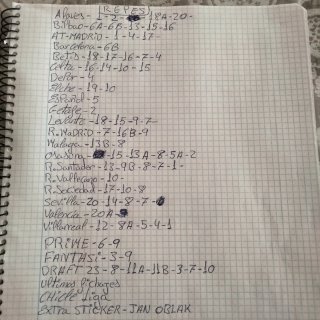 REPES
Alaves - 1 - 2 - 18A - 20 -
Bilbao - 6A - 6B - 13 - 15 - 16
AT-MADRID - 1 - 4 - 17 -
Barcelona - 6B
Betis - 18 - 17 - 16 - 7 - 4
Celta - 16 - 14 - 10 - 15
Depor - 4
Elche - 19 - 10
Español - 5
Getafe - 2
Levante - 18 - 15 - 9 - 7 -
R. MADRID - 7 - 16B - 9
Malaga - 13B - 8
Osasuna - 15 - 13A - 8 - 5A - 2
R. Santander - 13 - 9B - 8 - 7 - 1 -
R. Vallecano - 10 -
R. Sociedad - 17 - 10 - 8
Sevilla - 20 - 14 - 8 - 7 -
Valencia - 20A -
Villarreal - 12 - 8A - 5 - 4 - 1
PRIME - 6 - 9
FANTASI - 3 - 9
DRAFT 23 - 8 - 11A - 11B - 3 - 7 - 10
Ultimos fichages
Chicle liga
Extra STICKER - JAN OBLAK